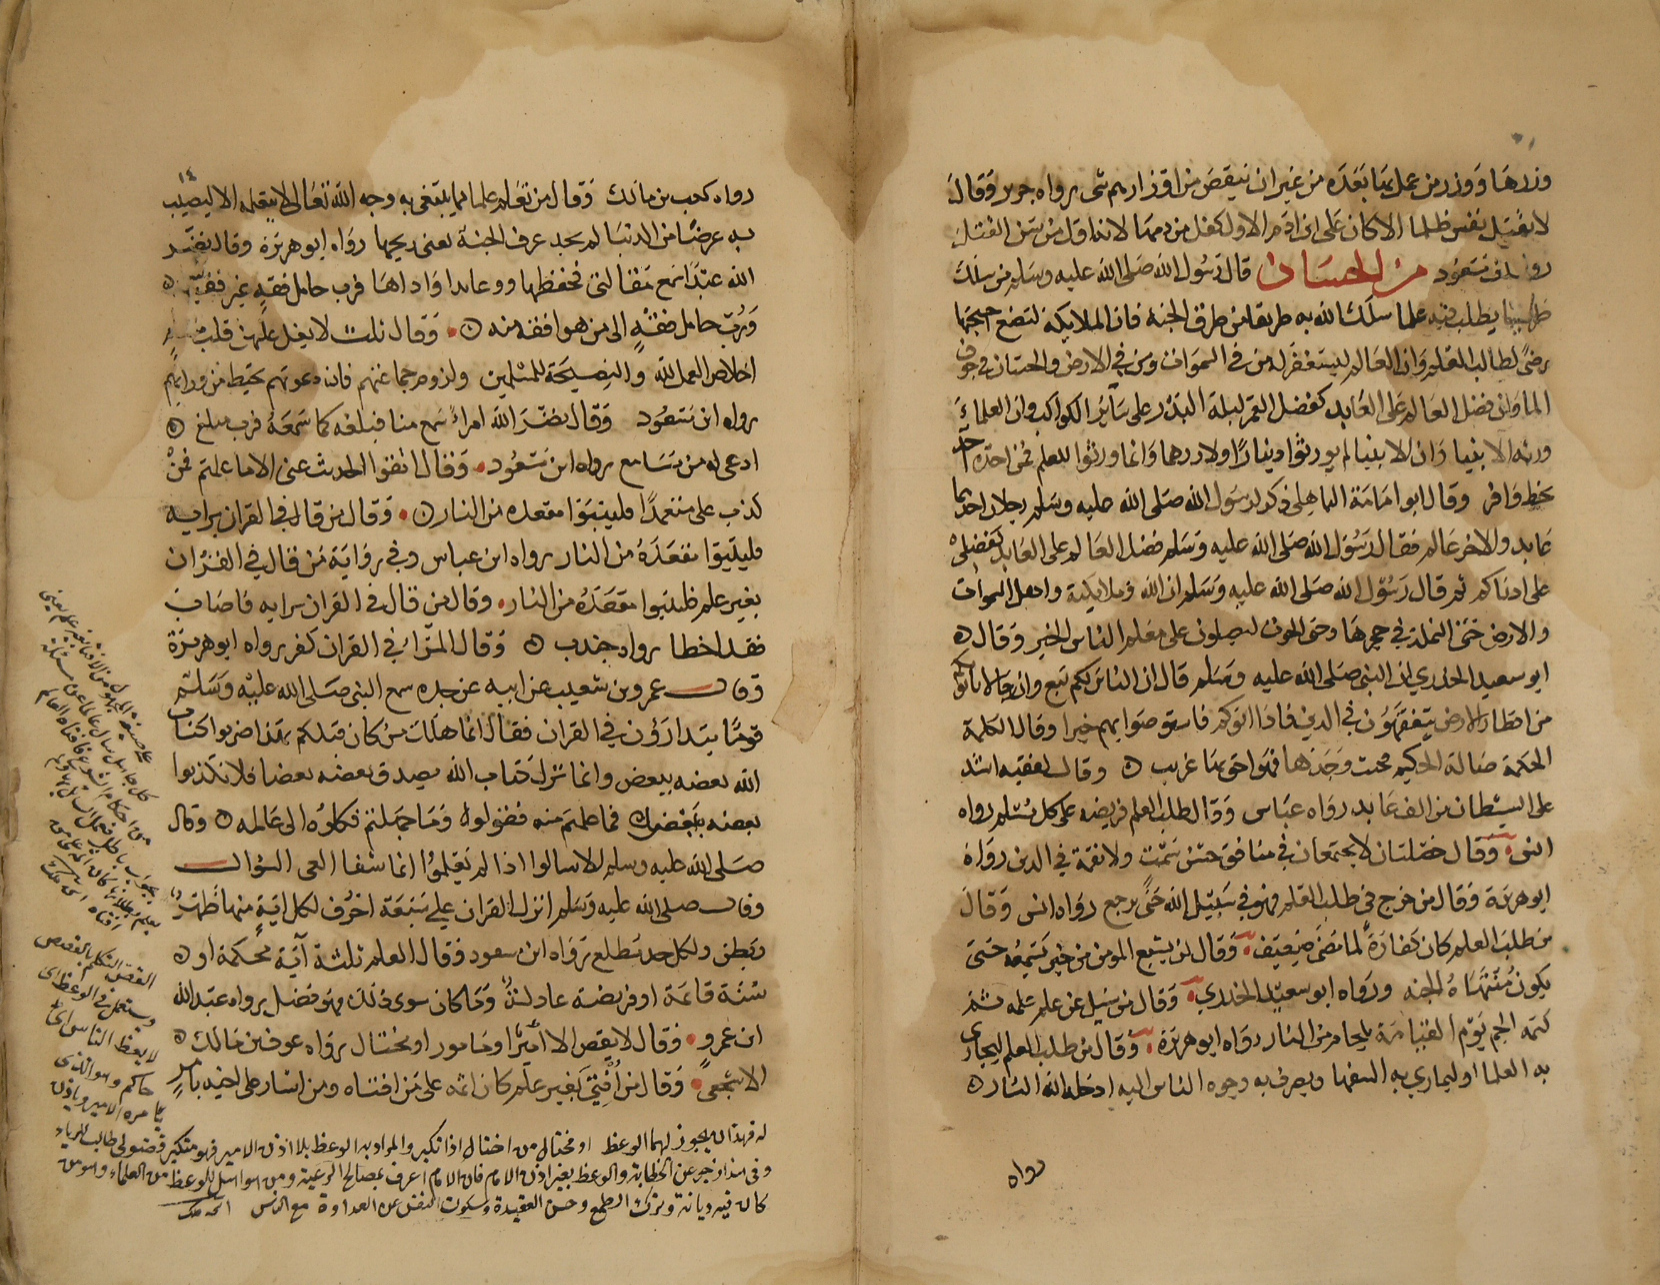 وزرها ووزر من عمل بها بعده من غير ان ينقص من اوزارهم شي رواه جرير وقال
لا تقتل نفس ظلما الا كان على ابن ادم الاول كفل من دمها لانه اول من سن القتل
رواه ابن مسعود من الحسان قال رسول الله صلى الله عليه وسلم من سلك
طريقا يطلب فيه علما سلك الله به طريقا من طرق الجنة فان الملايكة لتضع اجنحتها
رضى لطالب العلم وان العالم ليستغفر له من في السموات ومن في الارض والحيتان في جوف
الما وان فضل العالم على العابد كفضل القمر ليلة البدر على سائر الكواكب وان العلماء
ورثة الانبيا وان الانبيا لم يورثوا دينارا ولا درهما وانما ورثوا العلم فمن اخذه اخذ
بحظ وافر وقال ابو امامة الباهلي ذكر لرسول الله صلى الله عليه وسلم رجلان احدهما
عابد والاخر عالم فقال رسول الله صلى الله عليه وسلم فضل العالم على العابد كفضلي
على ادناكم ثم قال رسول الله صلى الله عليه وسلم ان الله وملايكته واهل السموات
والارض حتى النملة في حجرها وحتى الحوت ليصلون على معلم الناس الخير وقال
ابو سعيد الخدري ان النبي صلى الله عليه وسلم قال ان الناس لكم تبع وان رجالا ياتونكم
من اقطار الارض يتفقهون في الدين فاذا اتوكم فاستوصوا بهم خيرا وقال الكلمة
الحكمة ضالة الحكيم فحيث وجدها فهو احق بها غريب وقال لفقيه اشد
على الشيطان من الف عابد رواه عباس وقال طلب العلم فريضة على كل مسلم رواه
انس وقال خصلتان لا يجتمعان في منافق حسن سمت ولا فقه في الدين رواه
ابو هريرة وقال من خرج في طلب العلم فهو في سبيل الله حتى يرجع رواه انس وقال
من طلب العلم كان كفارة لما مضى ضعيف وقال لن يشبع المومن من خير يسمعه حتى
يكون منتهاه الجنة ورواه ابو سعيد الخدري وقال من سيل عن علم علمه ثم
كتمه الجم يوم القيامة بلجام من النار رواه ابو هريرة وقال من طلب العلم ليجاري
به العلما او ليماري به السفها ويصرف به وجوه الناس اليه ادخله الله النار
رواه
١٤
رواه كعب بن مالك وقال من تعلم علما مما يبتغى به وجه الله تعالى لا يتعلمه الا ليصيب
به عرضا من الدنيا لم يجد عرف الجنة يعني ريحها رواه ابو هريرة وقال نضر
الله عبدا سمع مقالتي فحفظها ووعاها واداها فرب حامل فقه غير فقيه
ورب حامل فقه الى من هو افقه منه وقال ثلث لا يغل عليهن قلب مسلم
اخلاص العمل لله والنصيحة للمسلمين ولزوم جماعتهم فان دعوتهم تحيط من ورايهم
رواه ابن مسعود وقال نضر الله امراء سمع منا فبلغه كما سمعه فرب مبلغ
اوعى له من سامع رواه ابن مسعود وقال اتقوا الحديث عني الا ما علمتم فمن
كذب علي متعمدا فليتبوا مقعده من النار وقال من قال في القران برايه
فليتبوا مقعده من النار رواه ابن عباس وفي رواية من قال في القران
بغير علم فليتبوا مقعده من النار وقال من قال في القران برايه فاصاب
فقد اخطا رواه جندب وقال المراء في القران كفر رواه ابو هريرة
وقال عمرو بن شعيب عن ابيه عن جده سمع النبي صلى الله عليه وسلم
قوما يتدارؤن في القران فقال انما هلك من كان قبلكم بهذا ضربوا كتاب
الله بعضه ببعض وانما نزل كتاب الله يصدق بعضه بعضا فلا تكذبوا
بعضه ببعض فما علمتم منه فقولوا وما جهلتم فكلوه الى عالمه وقال
صلى الله عليه وسلم الا سالوا اذا لم يعلموا انما شفا العي السوال
وقال صلى الله عليه وسلم انزل القران على سبعة احرف لكل اية منها ظهر
وبطن ولكل حد مطلع رواه ابن مسعود وقال العلم ثلثة آية محكمة او
سنة قائمة او فريضة عادلة وما كان سوى ذلك فهو فضل رواه عبد الله
ابن عمرو وقال لا يقص الا امير او مامور او مختال رواه عوف بن مالك
الاشجعي وقال من افتي بغير علم كان اثمه على من افتاه ومن اشار على اخيه بامر
له فهذان يجوز لهما الوعظ او مختال من اختال اذا تكبر والمراد به الوعظ بلا اذن الامير فهو متكبر فضولي طالب للرياء
وفي هذا زجر عن الخطابة والوعظ بغير اذن الامام فان الامام اعرف بمصالح الرعية ومن هو اهل للوعظ من العلماء وهو من
كان فيه ديانة وترك الطمع وحسن العقيدة وسكوت النفس عن العداوة مع الناس
القص التكلم بالقصص
ويستعمل في الوعظ اي
لا يعظ الناس الا
حاكم وهو الذي
يامره الامير وياذن